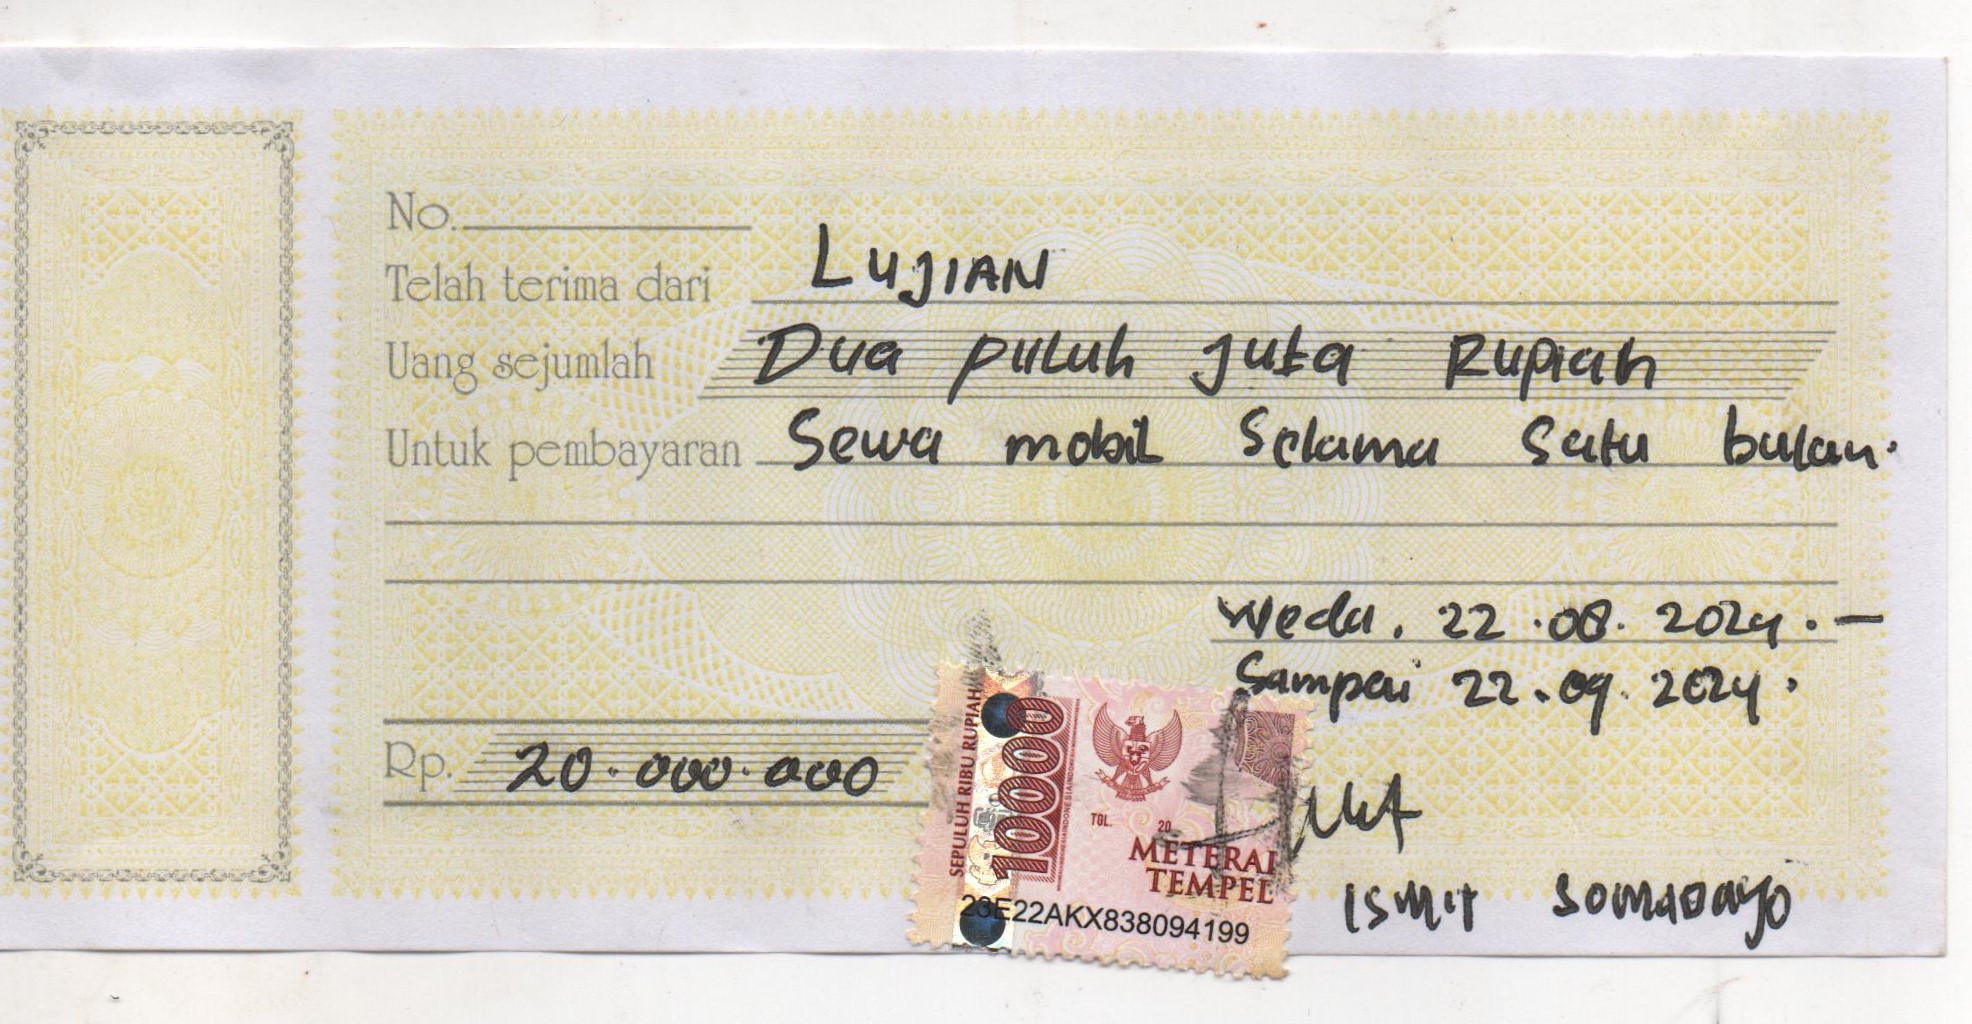 No.
Telah terima dari LUJIAN
Uang sejumlah Dua puluh juta Rupiah
Untuk pembayaran Sewa mobil Selama Satu bulan.
Weda, 22.08.2024.-
Sampai 22.09.2024.
Rp. 20.000.000
SEPULUH RIBU RUPIAH
10000
TGL. 20
METERAI
TEMPEL
23E22AKX838094199
ISMIT SOMADAYO